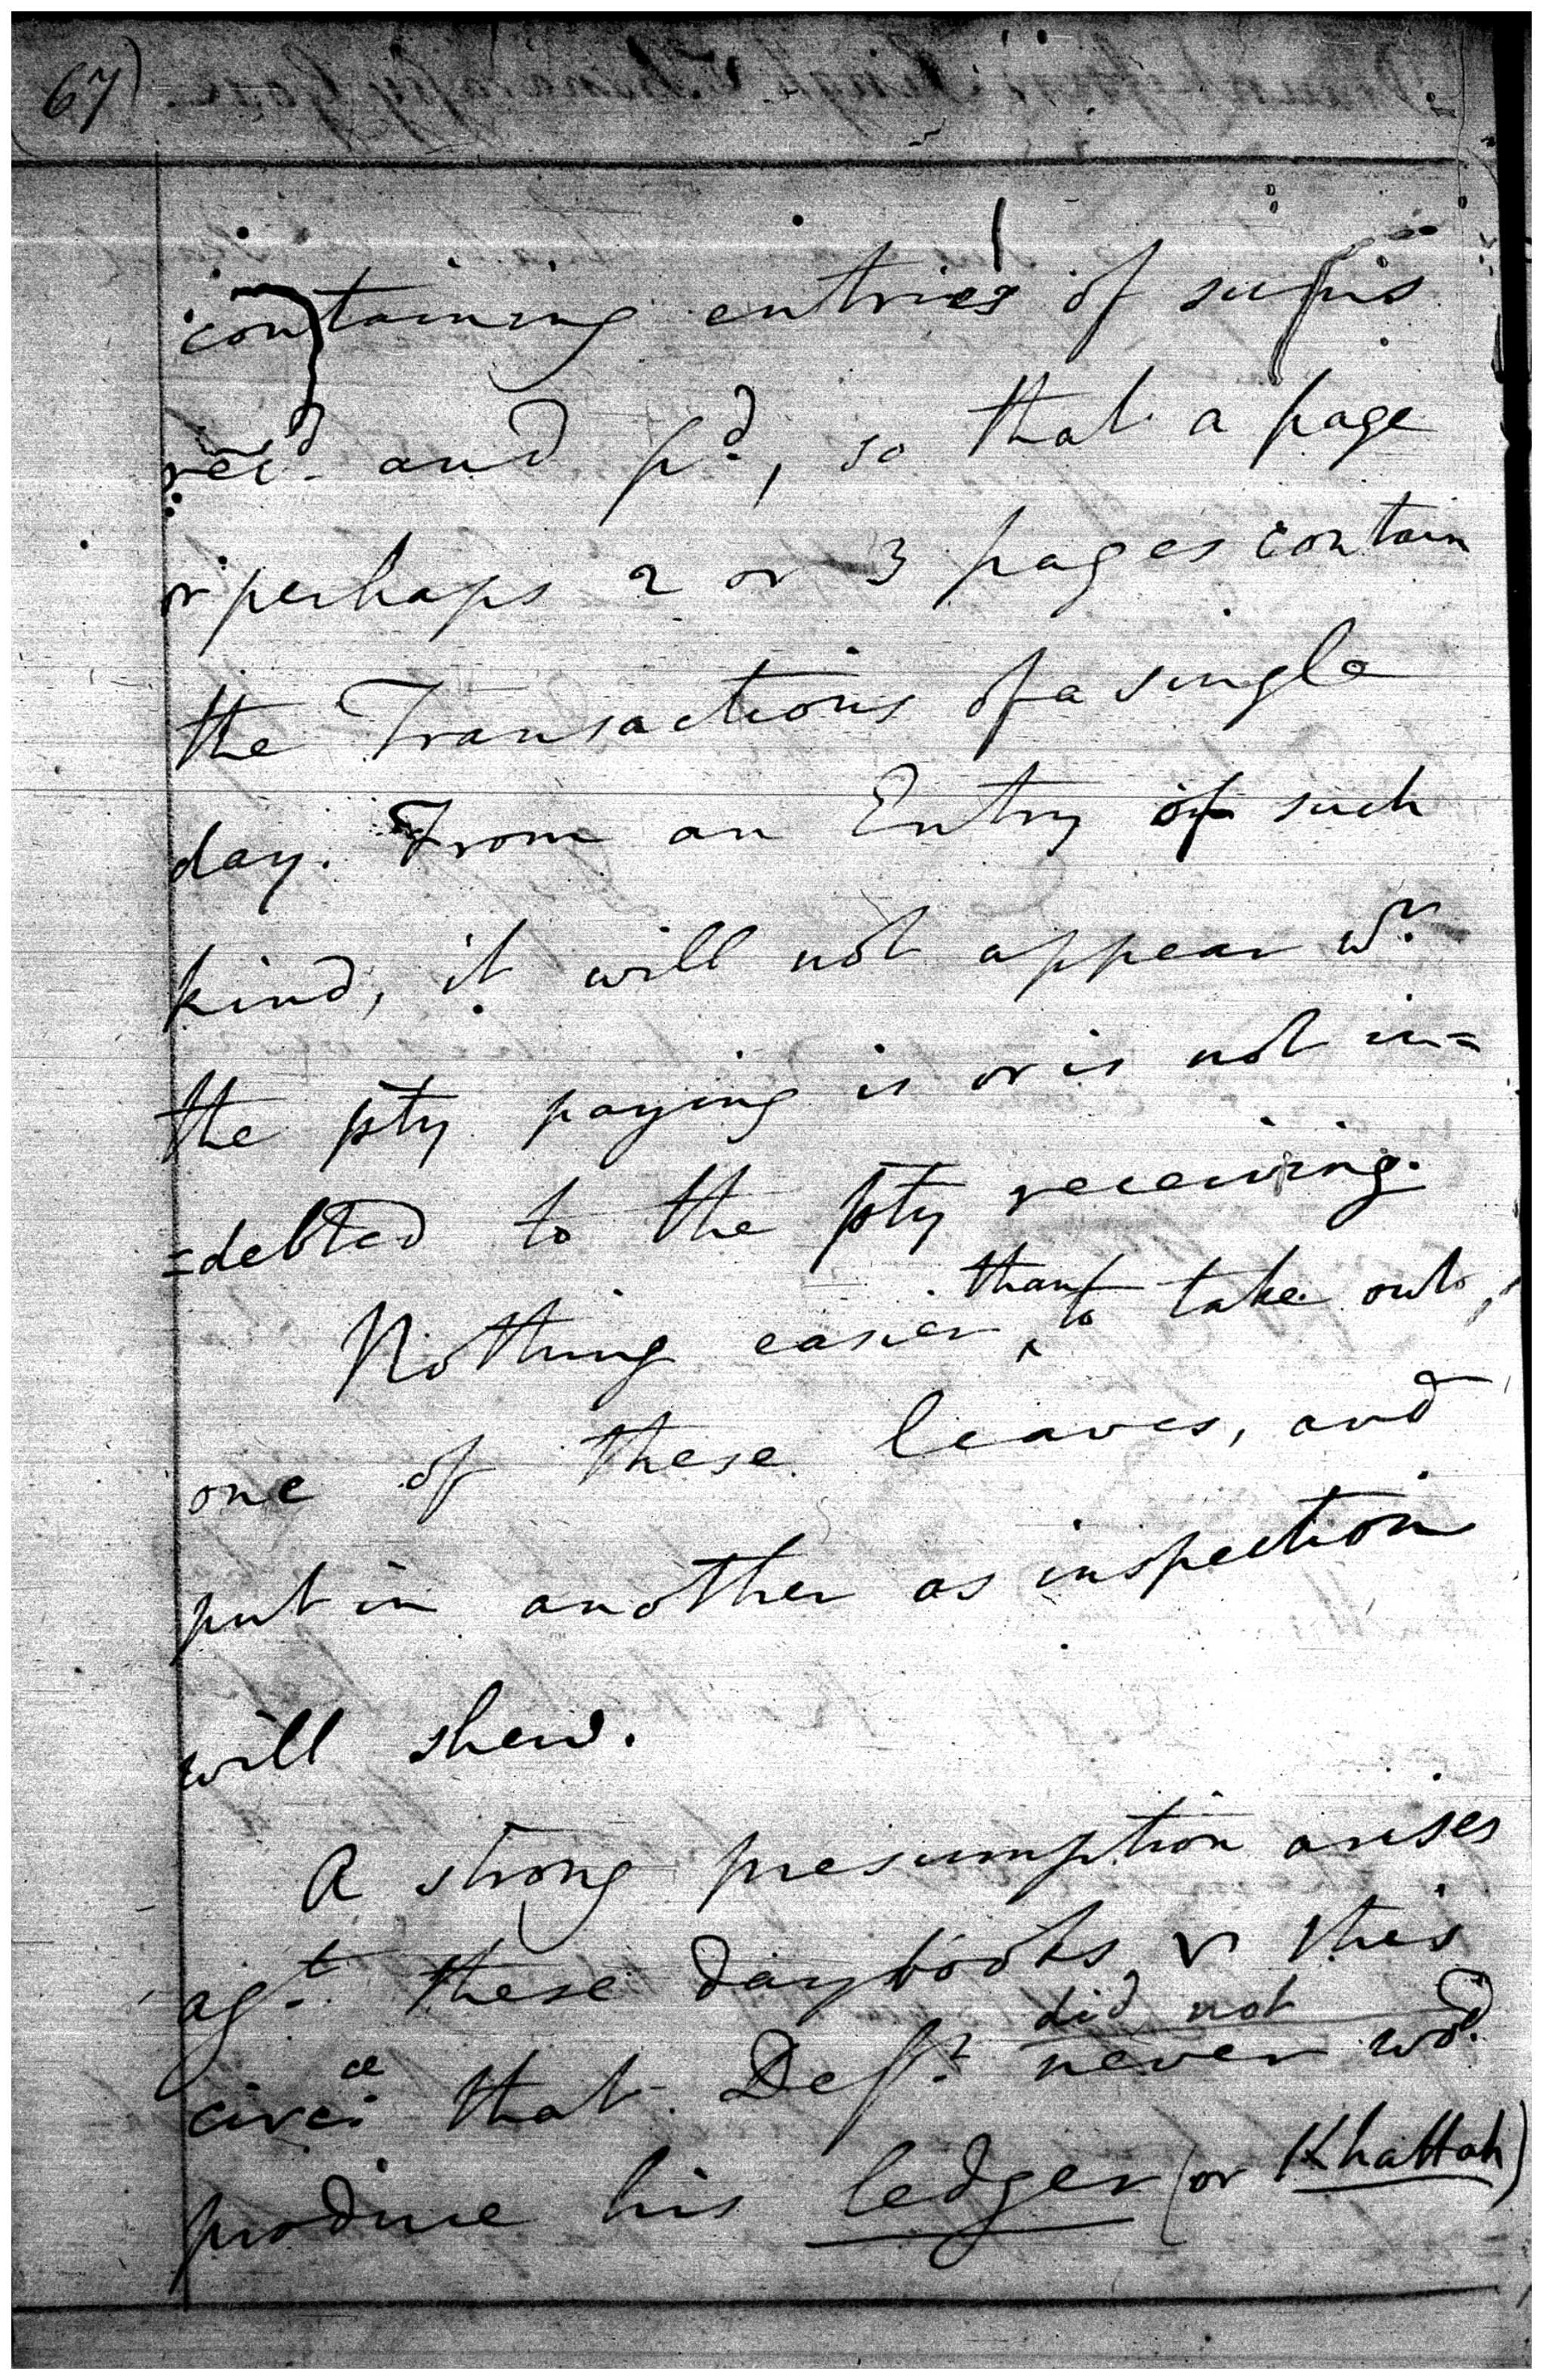 67)
containing entries of sums
rec^d. and p^d., so that a page
or perhaps 2 or 3 pages contain
the Transactions of a single
day. From an Entry of such
kind, it will not appear w^r.
the pty paying is or is not in=
=debted to the pty receiving.
than
Nothing easier ^ to take out
one of these leaves, and
put in another as inspection
will shew.
A strong presumption arises
ag^t. these daybooks, this
did not
that Def^t. never wo^d.
produce his ledger (or Khattah)